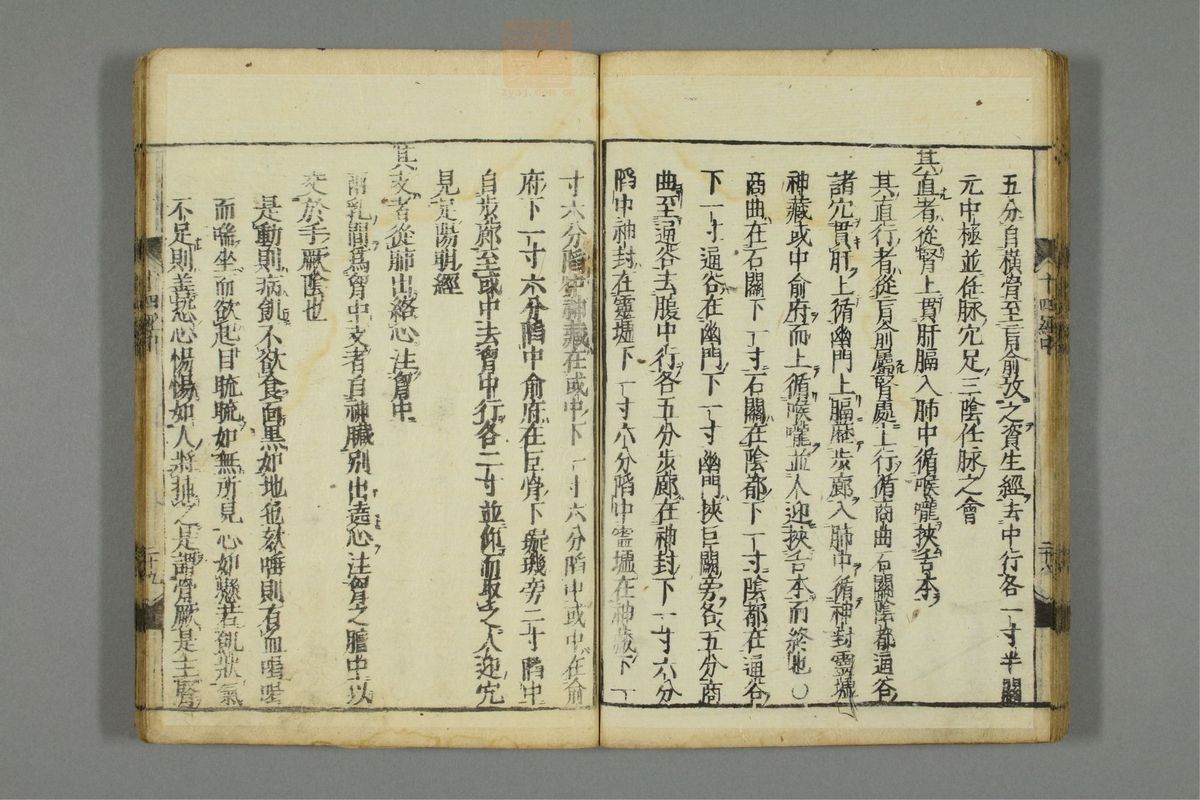 五分自橫骨至肓俞攷之資生經去中行各一寸半關
元中極並任脉穴足三陰任脉之會
其直者從腎上貫肝膈入肺中循喉嚨挾舌本
其直行者從肓俞屬腎處上行循商曲石關陰都通谷
諸穴貫肝上循幽門上膈歷步廊入肺中循神封靈墟
神藏或中俞府而上循喉嚨並人迎挾舌本而終也〇
商曲在石關下一寸石關在陰都下一寸陰都在通谷
下一寸通谷在幽門下一寸幽門挾巨闕旁各五分商
曲至通谷去腹中行各五分步廊在神封下一寸六分
陷中神封在靈墟下一寸六分陷中靈墟在神藏下一
寸六分陷中神藏在或中下一寸六分陷中或中在俞
府下一寸六分陷中俞府在巨骨下璇璣旁二寸陷中
自步廊至或中去胷中行各二寸並仰而取之人迎穴
見足陽明經
其支者從肺出絡心注胷中
兩乳間爲胷中支者自神藏別出遶心注胷之膻中以
交於手厥陰也
是動則病飢不欲食面黑如地色欬唾則有血喝喝
而喘坐而欲起目䀮䀮如無所見心如懸若飢狀氣
不足則善恐心惕惕如人將捕之是謂骨厥是主腎
十四經中
十四經中
二十九
zysj.com.cn